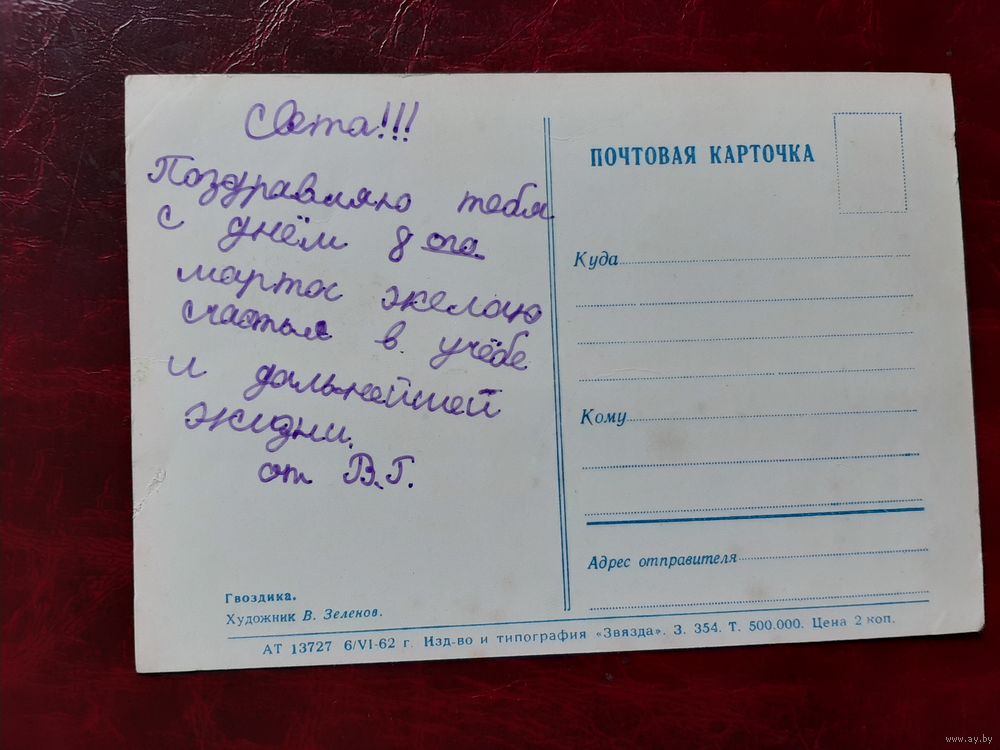 Света!!!
Поздравляю тебя
с днём 8 ога
марта желаю
счастья в учёбе
и дальнейшей
жизни.
от В.Г.
Гвоздика.
Художник В. Зеленов.
ПОЧТОВАЯ КАРТОЧКА
Куда
Кому
Адрес отправителя
АТ 13727 6/VI-62 г. Изд-во и типография «Звязда». З. 354. Т. 500.000. Цена 2 коп.
www.ay.by